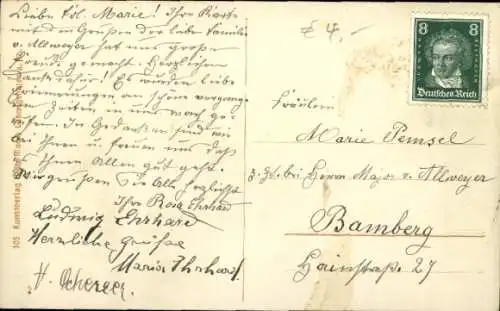 Liebe Frl. Marie! Ihre Karte
mit den Grüßen der lieben Familie
v. Allweyer hat uns große
Freude gemacht. Herzlichen
Dank dafür! Es wurden liebe
Erinnerungen an schöne vergang.
Zeiten in uns wach
In Gedanken sind wir
bei Ihnen u. freuen uns daß
es Ihnen Allen gut geht.
Wir grüßen Sie Alle herzlichst
Ihre Rosa Ehrhard
Ludwig Ehrhard
Herzliche Grüße
Maria Ehrhard
H. Scherer
105 Kunstverlag
£ 4,-
8 8
Deutsches Reich
Fräulein
Marie Pemsel
z. Zt. bei Herrn Major v. Allweyer
Bamberg
Hainstraße 27